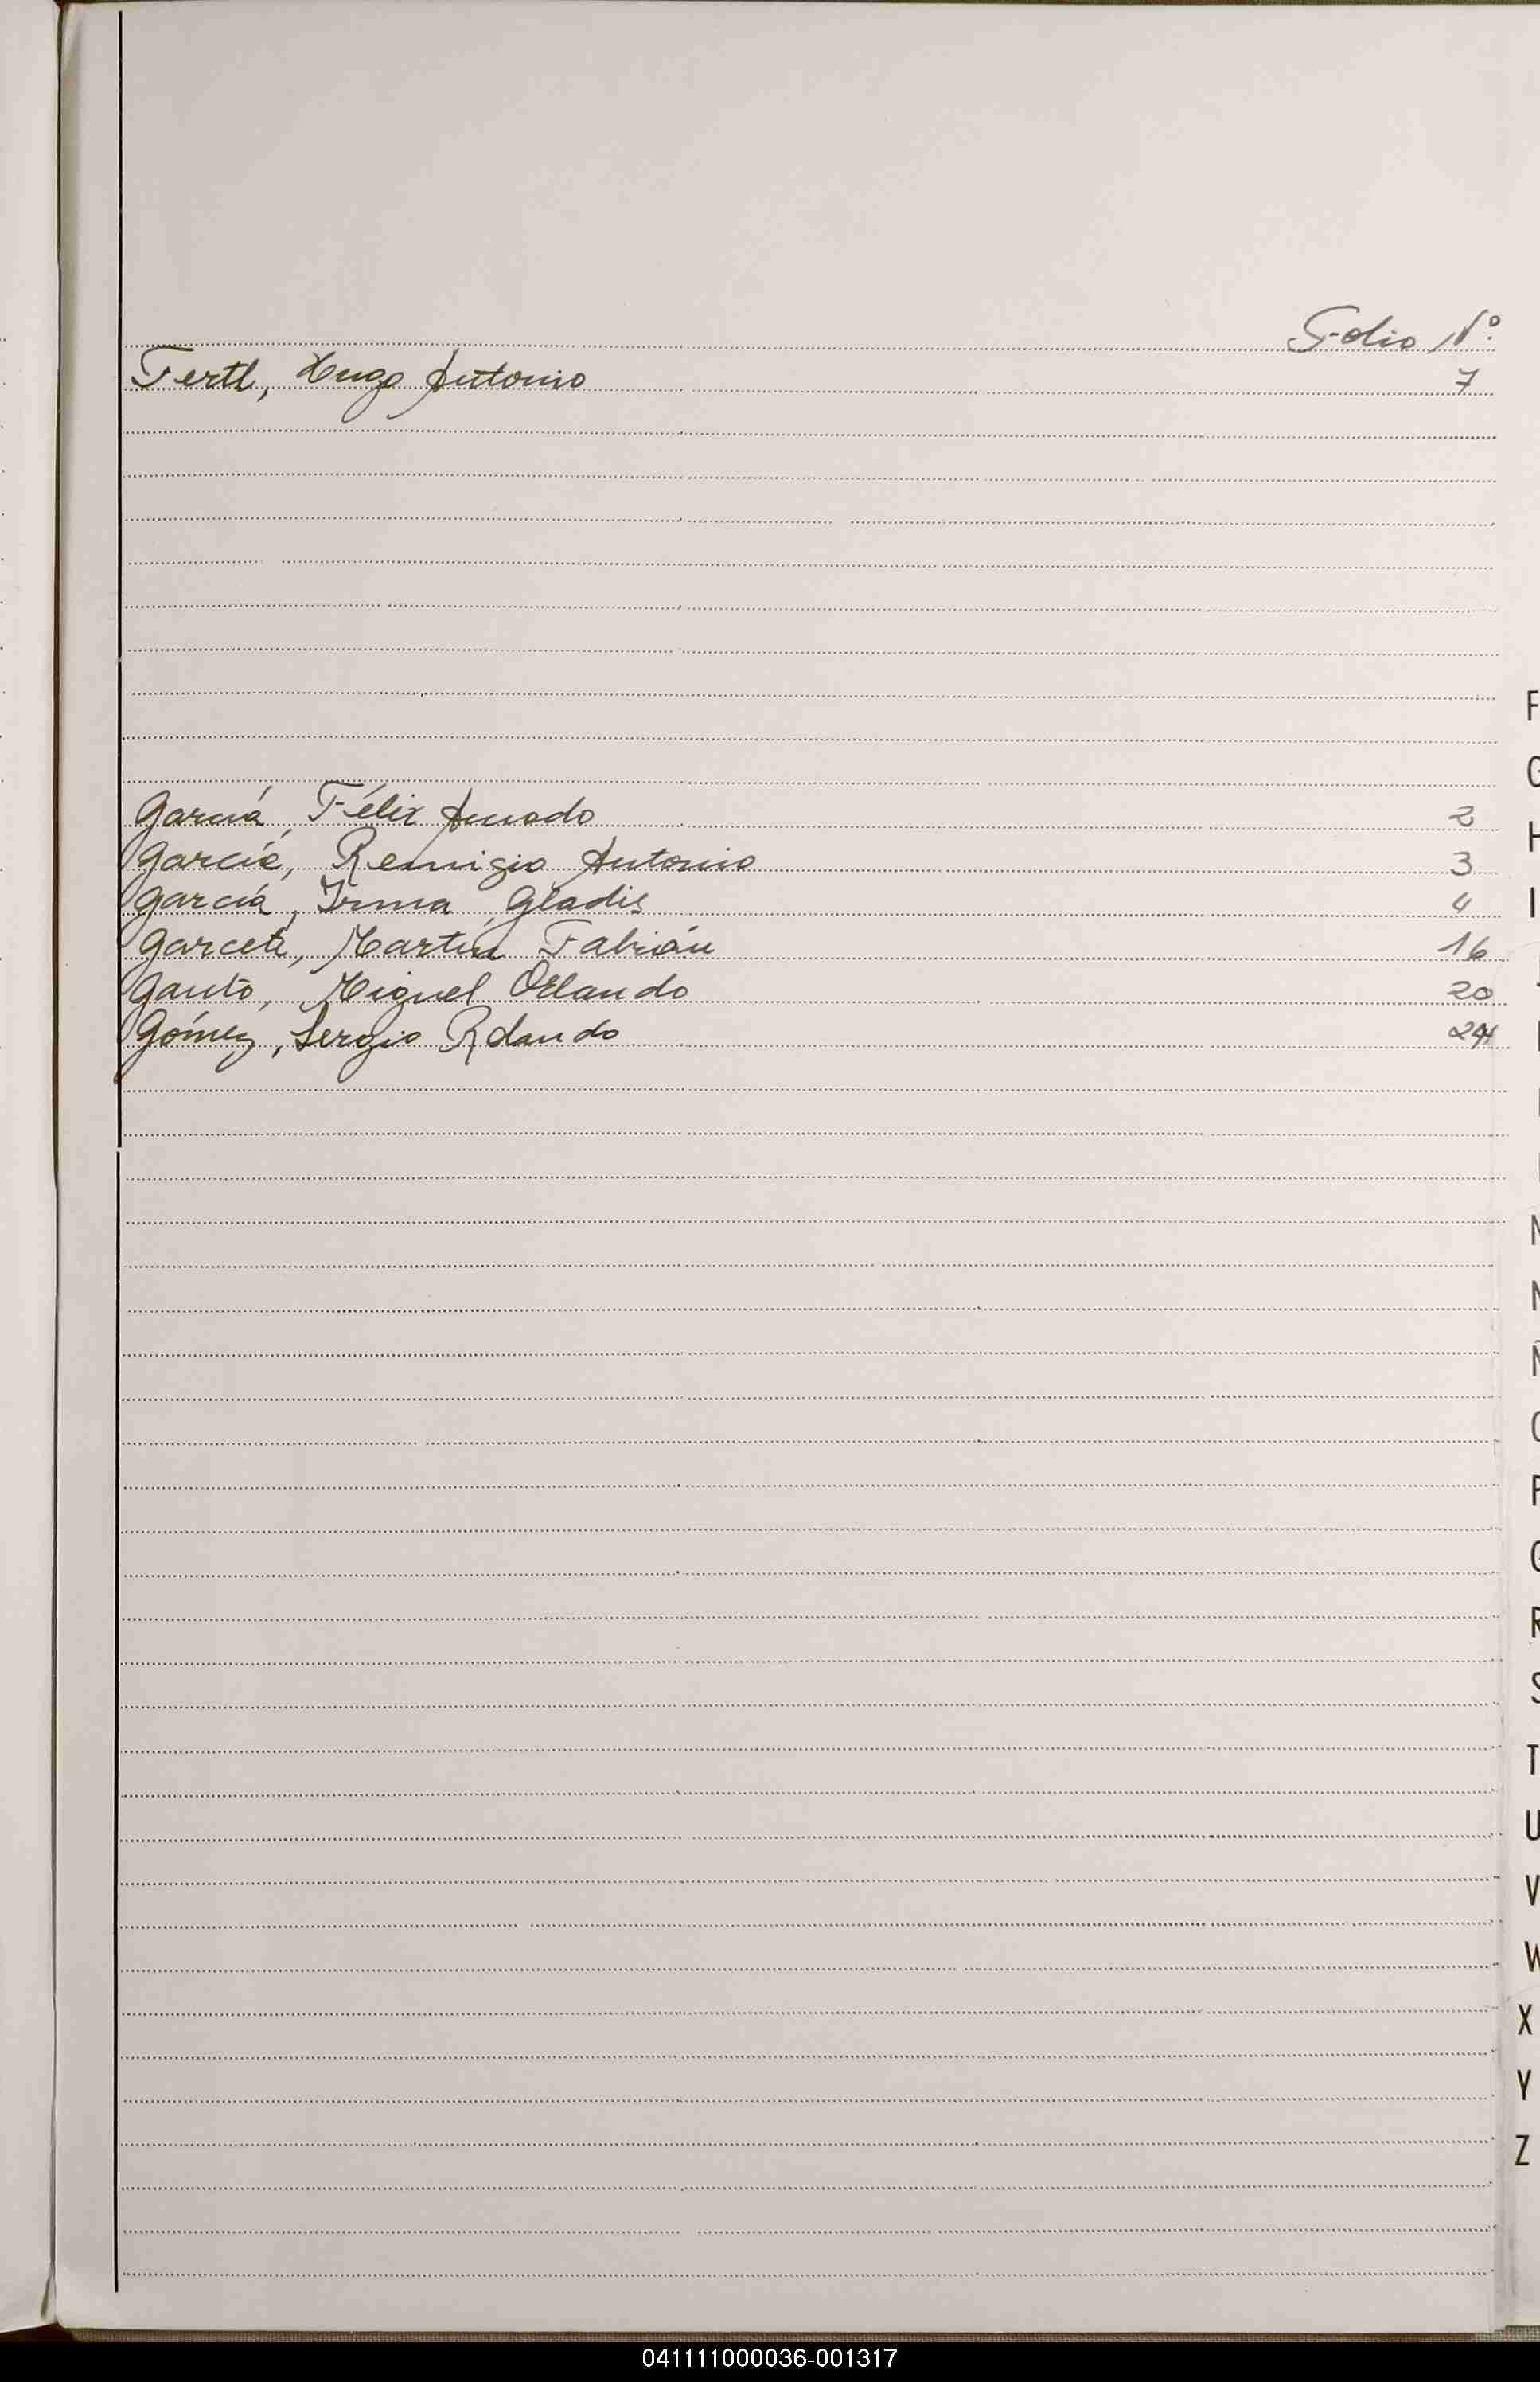 Folio Nº.
Fertl, Hugo Antonio 7
García, Félix Amado 2
García, Remigio Antonio 3
García, Irma Gladis 4
Garceti, Martín Fabián 16
Gauto, Miguel Orlando 20
Gómez, Sergio Rolando 24
F
G
H
I
N
Ñ
P
R
S
T
U
V
W
X
Y
Z
041111000036-001317